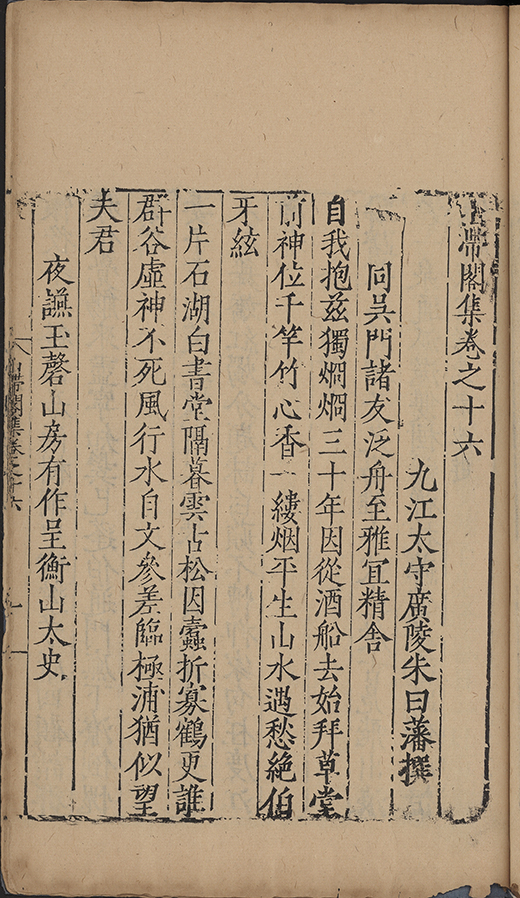 山帶閣集卷之十六
九江太守廣陵朱曰藩撰
同吳門諸友泛舟至雅宜精舍
自我抱茲獨烱烱三十年因從酒船去始拜草堂
前神位千竿竹心香一縷烟平生山水遇愁絶伯
牙絃
一片石湖白書堂隔暮雲占松因蠹折寡鶴更誰
群谷虛神不死風行水自文參差臨極浦猶似望
夫君
夜讌玉磬山房有作呈衡山太史
山帶閣集卷之十六
一